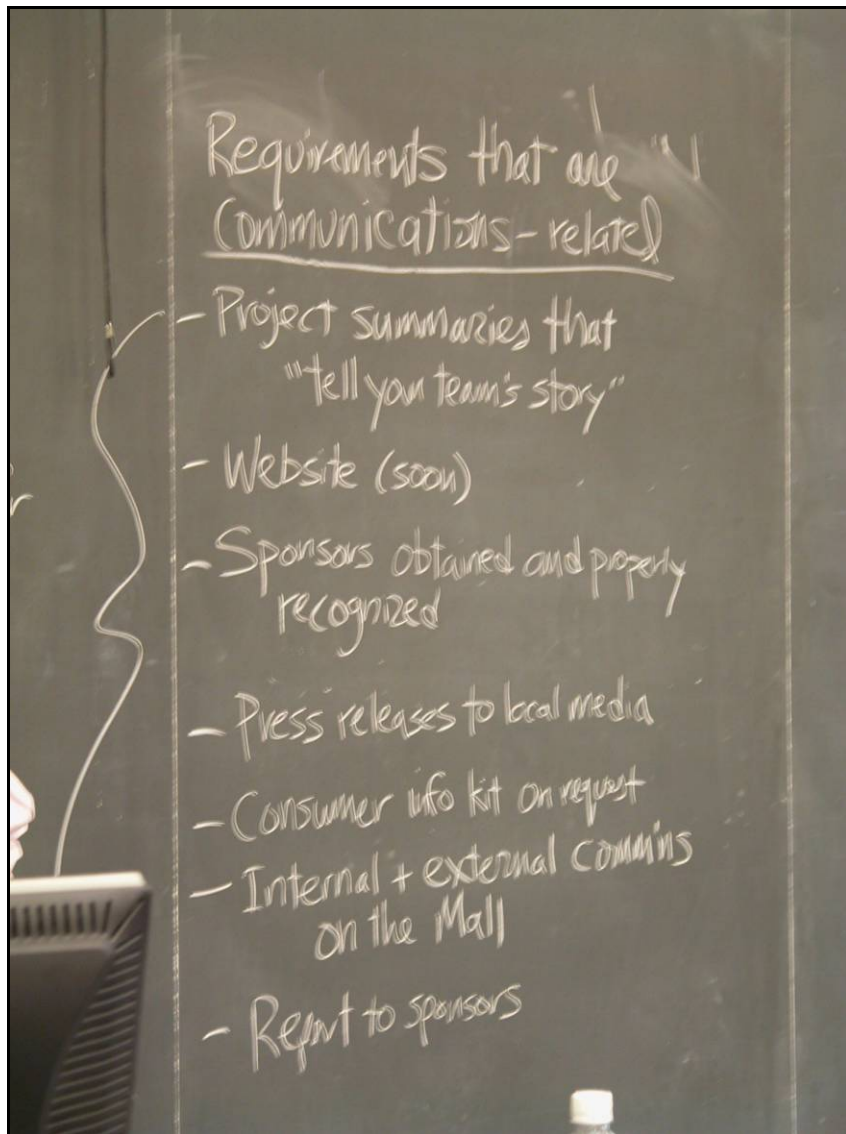 Requirements that are
Communications-related
- Project summaries that
"'tell your team's story"
- Website (soon)
- Sponsors obtained and properly
recognized
- Press releases to local media
- Consumer info kit on request
- Internal + external commins
on the Mall
- Report to sponsors